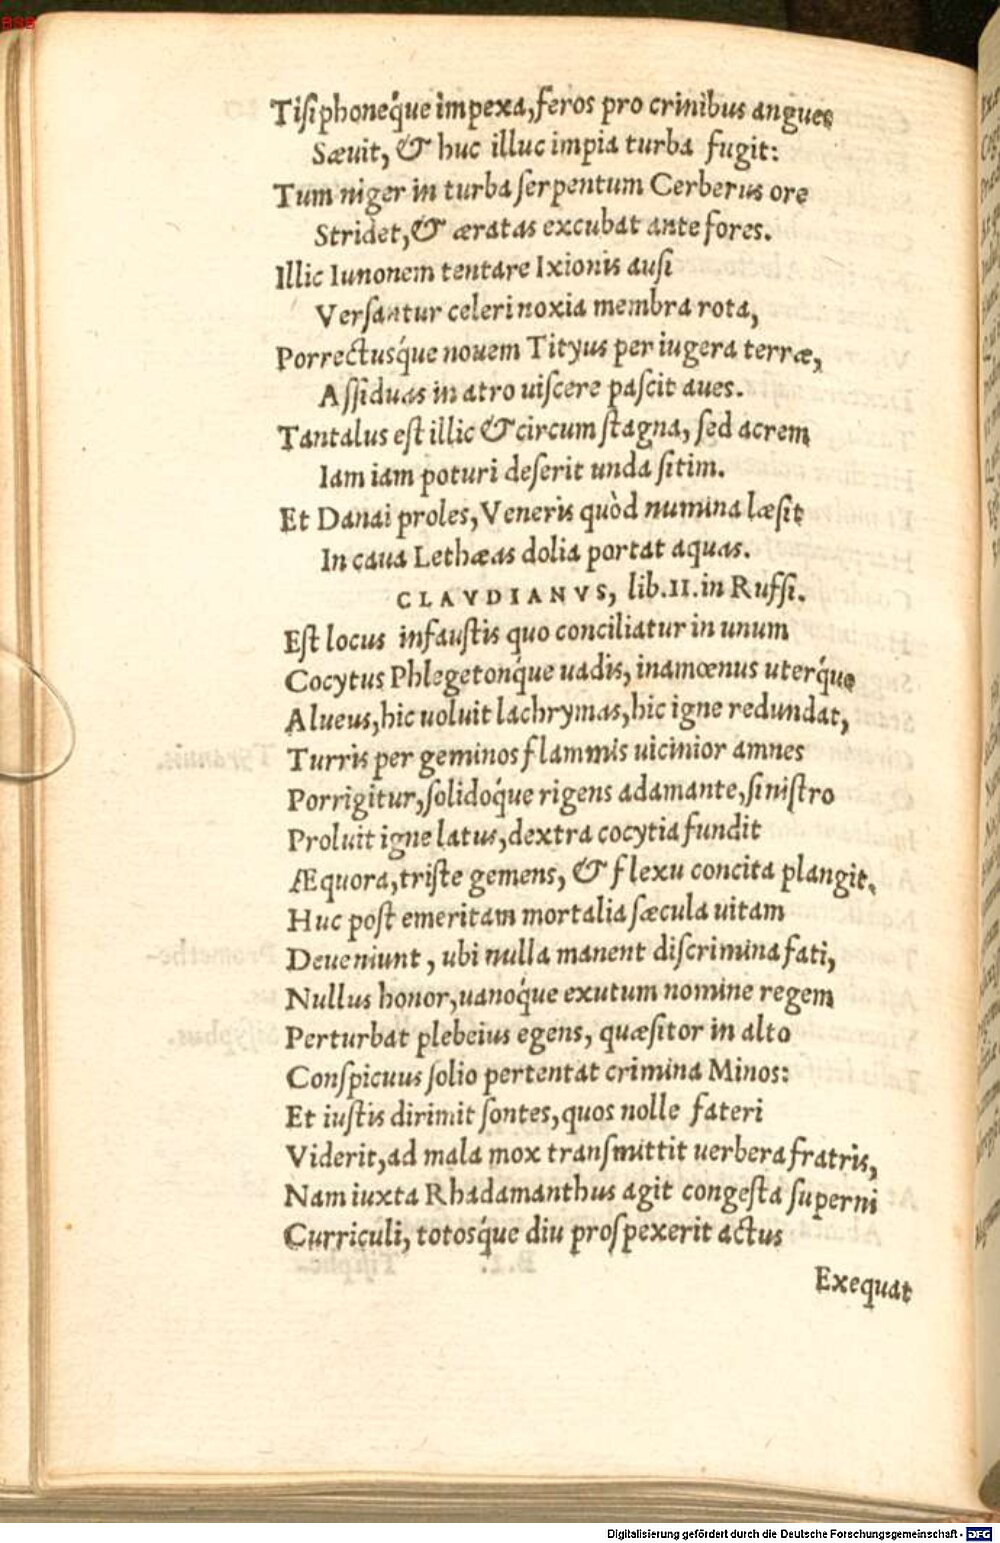 BSB
Tiſiphoneq́ue impexa, feros pro crinibus angues
Sæuit, & huc illuc impia turba fugit:
Tum niger in turba ſerpentum Cerberus ore
Stridet, & æratas excubat ante fores.
Illic Iunonem tentare Ixionis auſi
Verſantur celeri noxia membra rota,
Porrectusq́ue nouem Tityus per iugera terræ,
Aſſiduas in atro uiſcere paſcit aues.
Tantalus eſt illic & circum ſtagna, ſed acrem
Iam iam poturi deſerit unda ſitim.
Et Danai proles, Veneris quòd numina læſit
In caua Lethæas dolia portat aquas.
CLAVDIANVS, lib. II. in Ruffi.
Eſt locus infauſtis quo conciliatur in unum
Cocytus Phlegetonq́ue uadis, inamœnus uterq́ue
Alueus, hic uoluit lachrymas, hic igne redundat,
Turris per geminos flammis uicinior amnes
Porrigitur, ſolidoq́ue rigens adamante, ſiniſtro
Proluit igne latus, dextra cocytia fundit
Æquora, triſte gemens, & flexu concita plangit.
Huc poſt emeritam mortalia ſæcula uitam
Deueniunt, ubi nulla manent diſcrimina fati,
Nullus honor, uanoq́ue exutum nomine regem
Perturbat plebeius egens, quæſitor in alto
Conſpicuus ſolio pertentat crimina Minos:
Et iuſtis dirimit ſontes, quos nolle fateri
Viderit, ad mala mox tranſmittit uerbera fratris,
Nam iuxta Rhadamanthus agit congeſta ſuperni
Curriculi, totosq́ue diu proſpexerit actus
Exequat
Digitalisierung gefördert durch die Deutsche Forschungsgemeinschaft - DFG